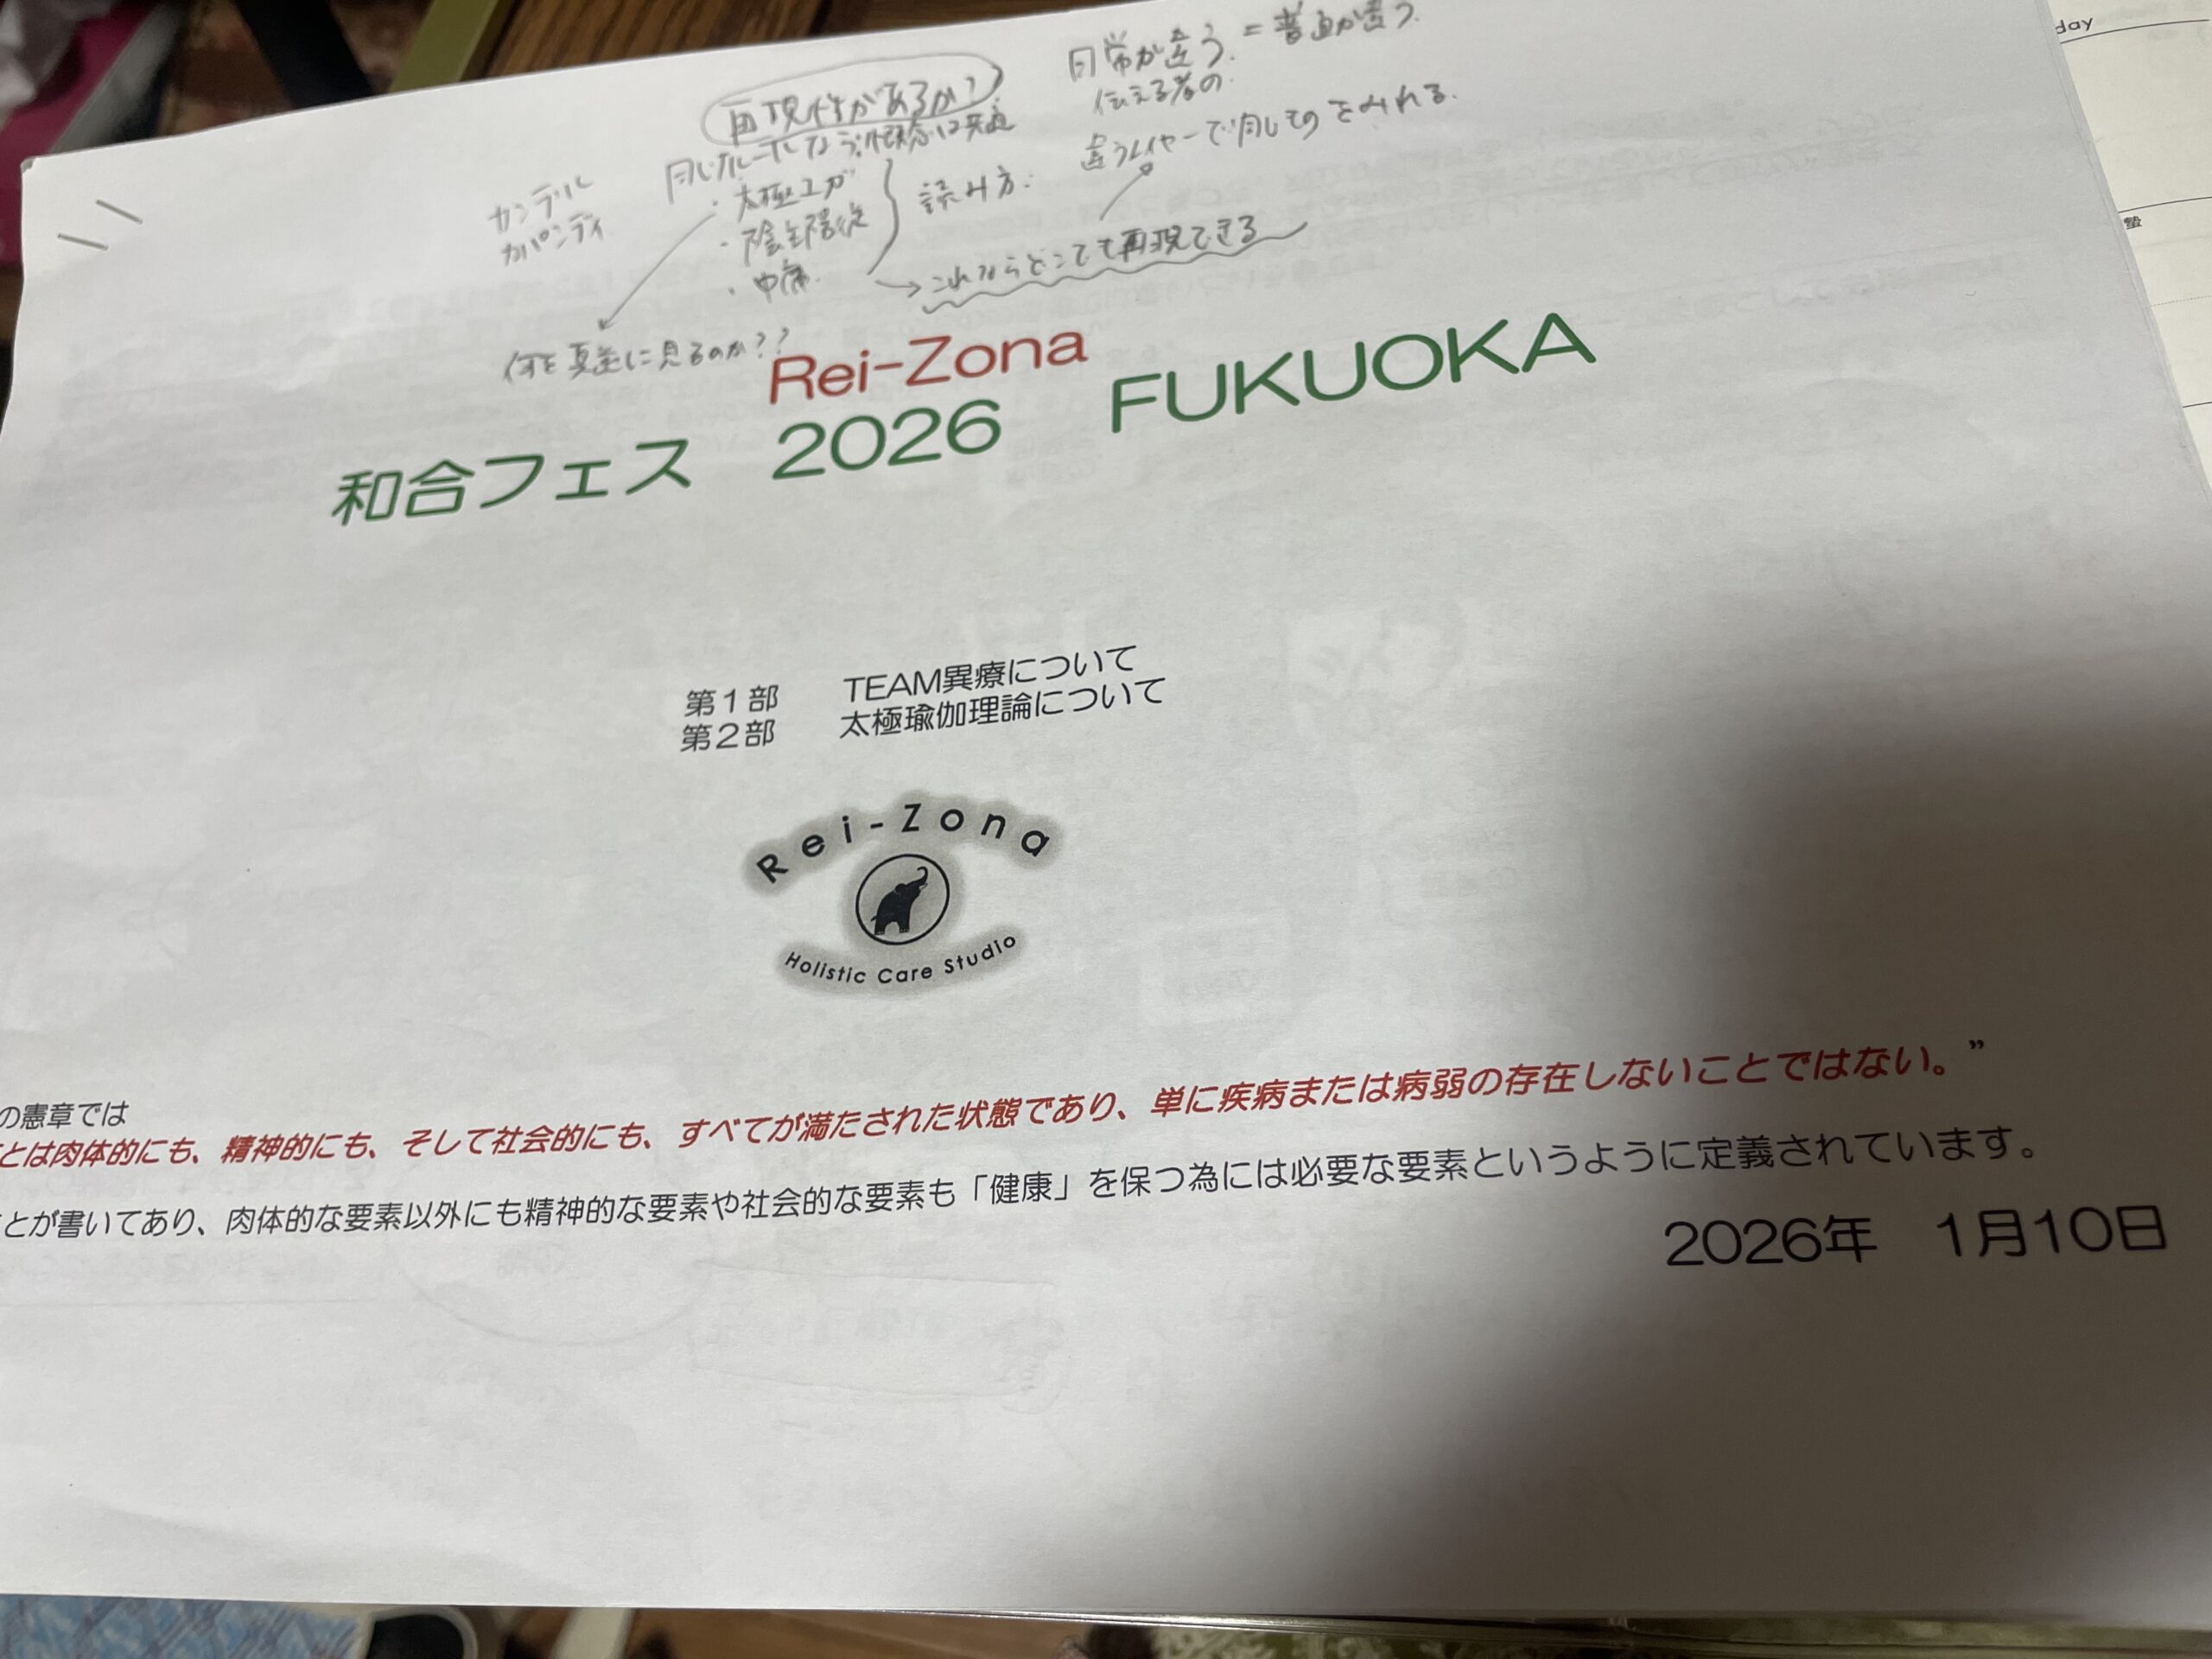 再現性があるか?
同じルールなら、概念は共通
・太極ヨガ
・陰主陽従
・中庸
読み方:
→これならどこでも再現できる
カンデル
カパンディ
何を真剣に見るのか??
日常が違う=普通が違う.
伝える者の
違うレイヤーで同じものをみれる.
Rei-Zona
和合フェス 2026 FUKUOKA
第1部 TEAM異療について
第2部 太極瑜伽理論について
Rei-Zona
Holistic Care Studio
の憲章では
とは肉体的にも、精神的にも、そして社会的にも、すべてが満たされた状態であり、単に疾病または病弱の存在しないことではない。”
とが書いてあり、肉体的な要素以外にも精神的な要素や社会的な要素も「健康」を保つ為には必要な要素というように定義されています。
2026年 1月10日
day